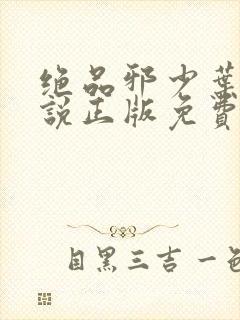 绝品邪少葉
説正版免費
目黑三吉一